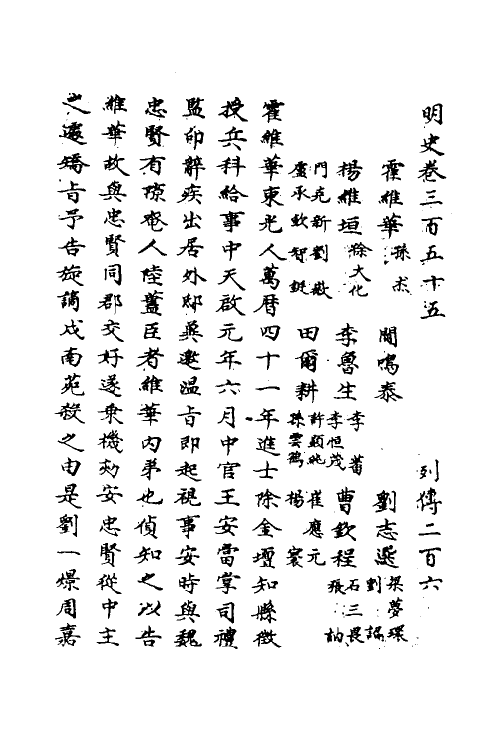 明史卷三百五十五 列傳二百六
霍維華 孫杰 閻鳴泰 劉志選 梁夢環 劉詔
楊維垣 徐大化 李魯生 李蕃 李恒茂 曹欽程 石三畏 張訥
門克新 劉徽 盧承欽 智鋌 田爾耕 許顯純 孫雲鶴 崔應元 楊寰
霍維華東光人萬曆四十一年進士除金壇知縣徵
授兵科給事中天啟元年六月中官王安當掌司禮
監印辭疾出居外邸冀邀温旨即起視事安時與魏
忠賢有隙奄人陸藎臣者維華內弟也偵知之以告
維華故與忠賢同郡交好遂乘機劾安忠賢從中主
之遽矯旨予告旋謫戍南苑殺之由是劉一燝周嘉